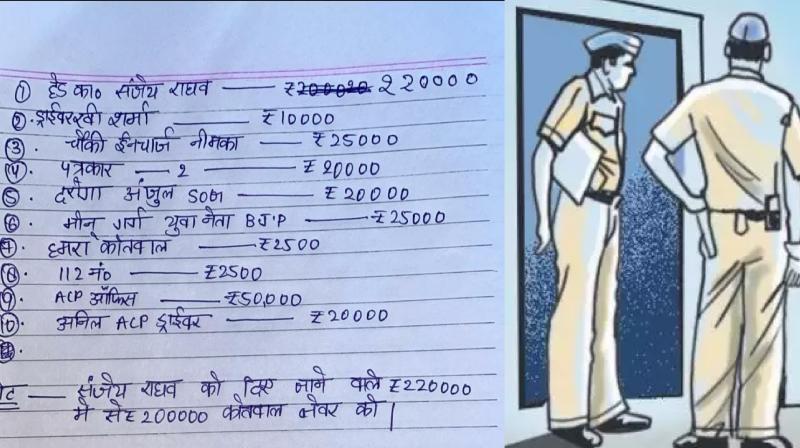 ① हैड का० संजय राघव —— ₹200020 220000
②. ड्राईवर रवी शर्मा —— ₹10000
③. चौंकी ईनचार्ज नीमका —— ₹25000
④. पत्रकार — 2 —— ₹20000
⑤. दरोगा अंजुल SOG —— ₹20000
⑥. मोनू गर्ग युवा नेता BJP —— ₹25000
⑦. हमरा कोतवाल —— ₹2500
⑧. 112 नं० —— ₹2500
⑨. ACP ऑफिस —— ₹50,000
10. अनिल ACP ड्राईवर —— ₹20000
संजय राघव को दिए जाने वाले ₹220000
में से ₹200000 कोतवाल जेवर को |